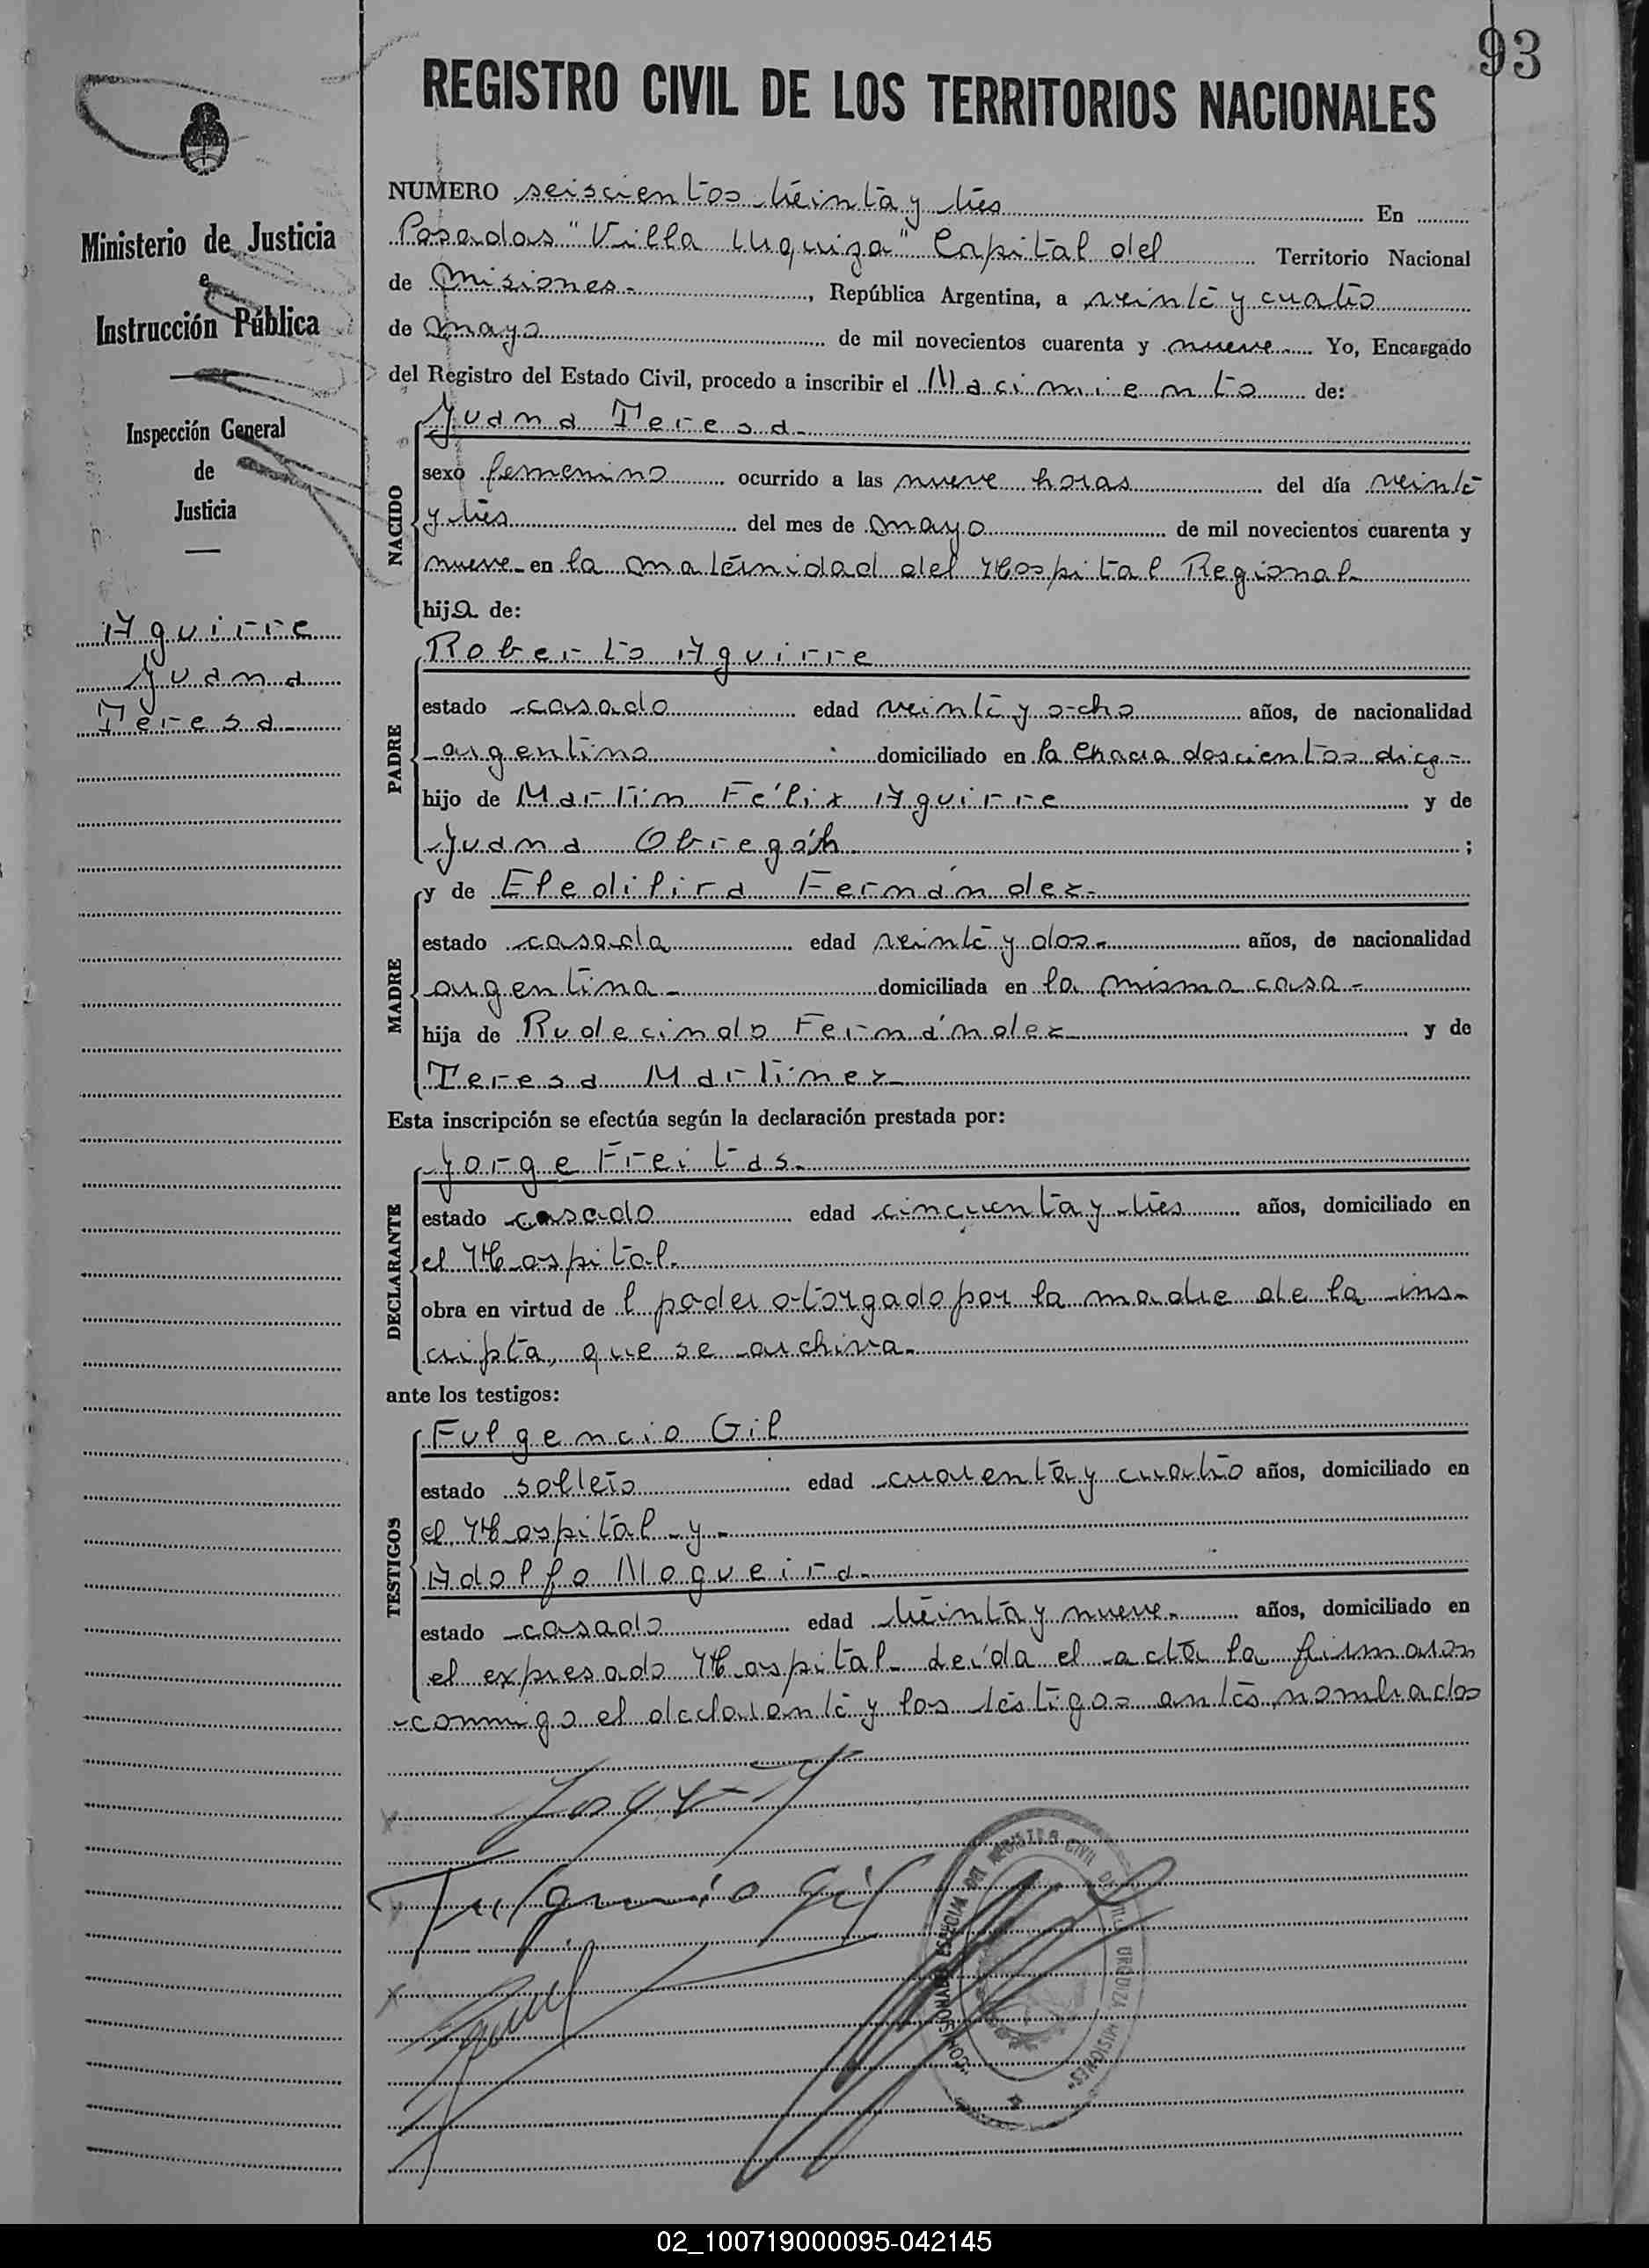 93
REGISTRO CIVIL DE LOS TERRITORIOS NACIONALES
Ministerio de Justicia
e
Instrucción Pública
Inspección General
de
Justicia
Aguirre
Juana
Teresa
NUMERO seiscientos treinta y tres En
Posadas "Villa Urquiza" Capital del Territorio Nacional
de Misiones.- , República Argentina, a veinte y cuatro
de mayo de mil novecientos cuarenta y nueve Yo, Encargado
del Registro del Estado Civil, procedo a inscribir el Nacimiento de:
NACIDO
Juana Teresa.
sexo femenino ocurrido a las nueve horas del día veinte
y tres del mes de mayo de mil novecientos cuarenta y
nueve en la maternidad del Hospital Regional
hija de:
PADRE
Roberto Aguirre
estado casado edad veinte y ocho años, de nacionalidad
argentino domiciliado en la chacra doscientos diez-
hijo de Martín Félix Aguirre y de
Juana Obregón ;
MADRE
y de Eledilira Fernández-
estado casada edad veinte y dos- años, de nacionalidad
argentina- domiciliada en la misma casa-
hija de Rudecindo Fernández y de
Teresa Martínez
Esta inscripción se efectúa según la declaración prestada por:
DECLARANTE
Jorge Freitas.
estado casado edad cincuenta y tres años, domiciliado en
el Hospital.
obra en virtud de l poder otorgado por la madre de la ins-
cripta, que se archiva.
ante los testigos:
TESTIGOS
Fulgencio Gil
estado soltero edad cuarenta y cuatro años, domiciliado en
el Hospital y-
Adolfo Nogueira.
estado casado edad treinta y nueve- años, domiciliado en
el expresado Hospital- Leída el acta la firmaron
conmigo el declarante y los testigos antes nombrados
Fulgencio Gil
REGISTRO CIVIL DE VILLA URQUIZA MISIONES"
02_100719000095-042145